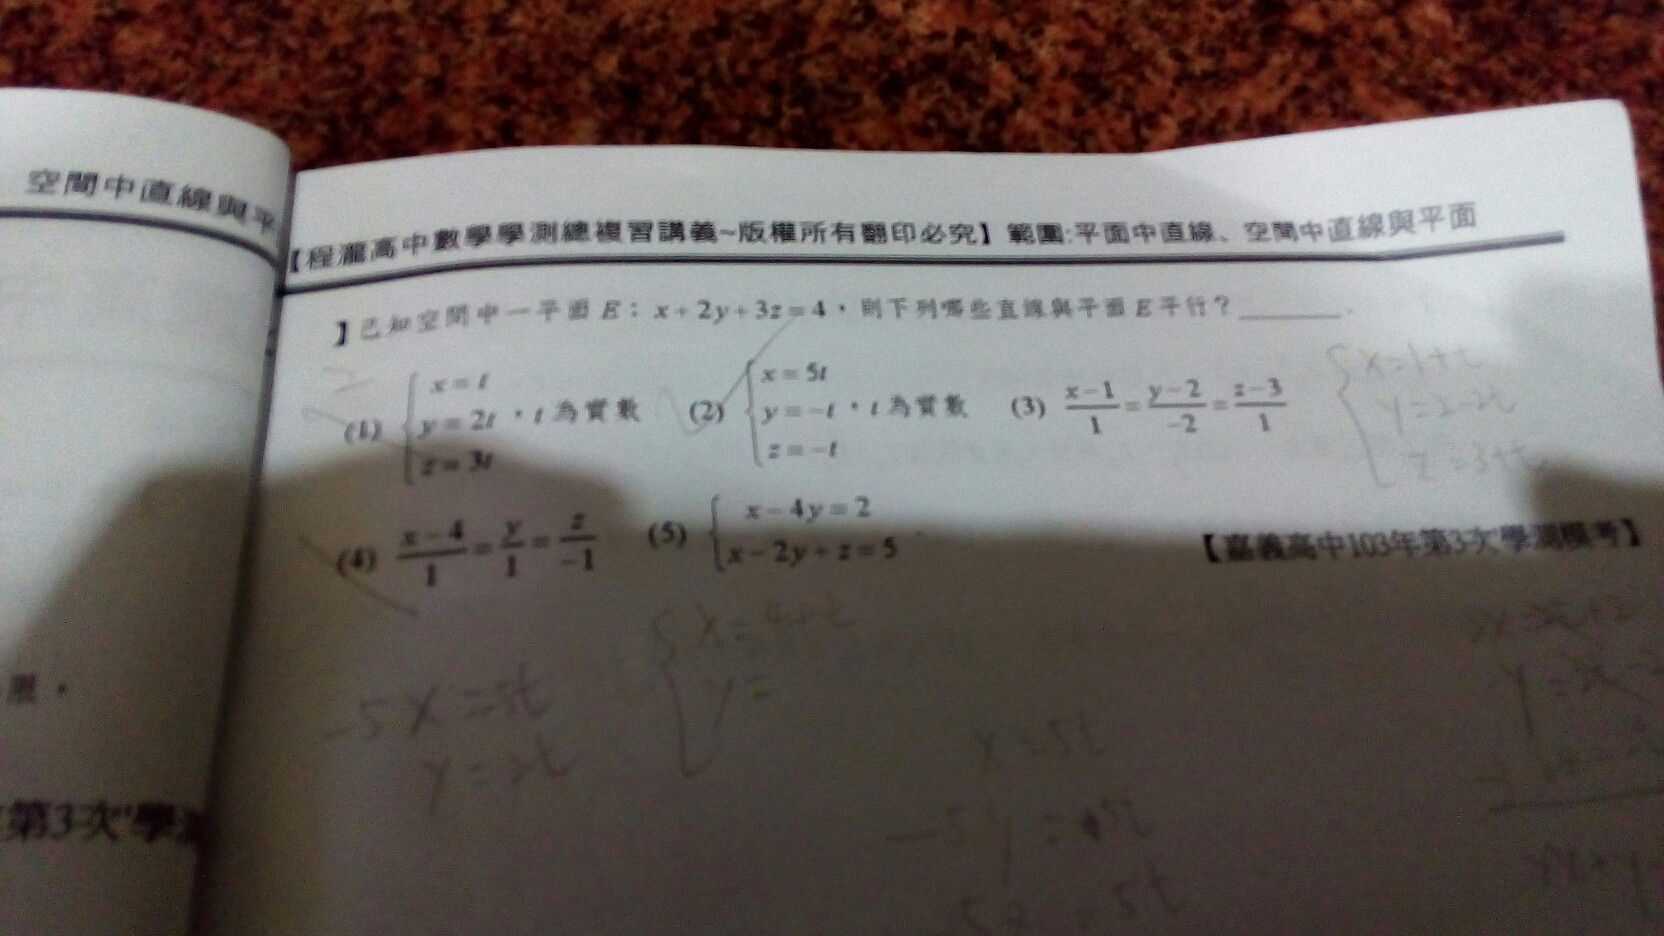 空間中直線與平
【程瀧高中數學學測總複習講義~版權所有翻印必究】範圍:平面中直線、空間中直線與平面
】已知空間中一平面 E：x+2y+3z=4，則下列哪些直線與平面 E 平行？______.
(1) { x=t y=2t z=3t ，t 為實數 (2) { x=5t y=-t z=-t ，t 為實數 (3) (x-1)/1 = (y-2)/-2 = (z-3)/1
{ x=1+t y=2-2t z=3+t
(4) (x-4)/1 = y/1 = z/-1 (5) { x-4y=2 x-2y+z=5 .
【嘉義高中103年第3次學測模考】
{ x=4+t y=
x=5t
y=2t
x=5t
限。
第3次學測